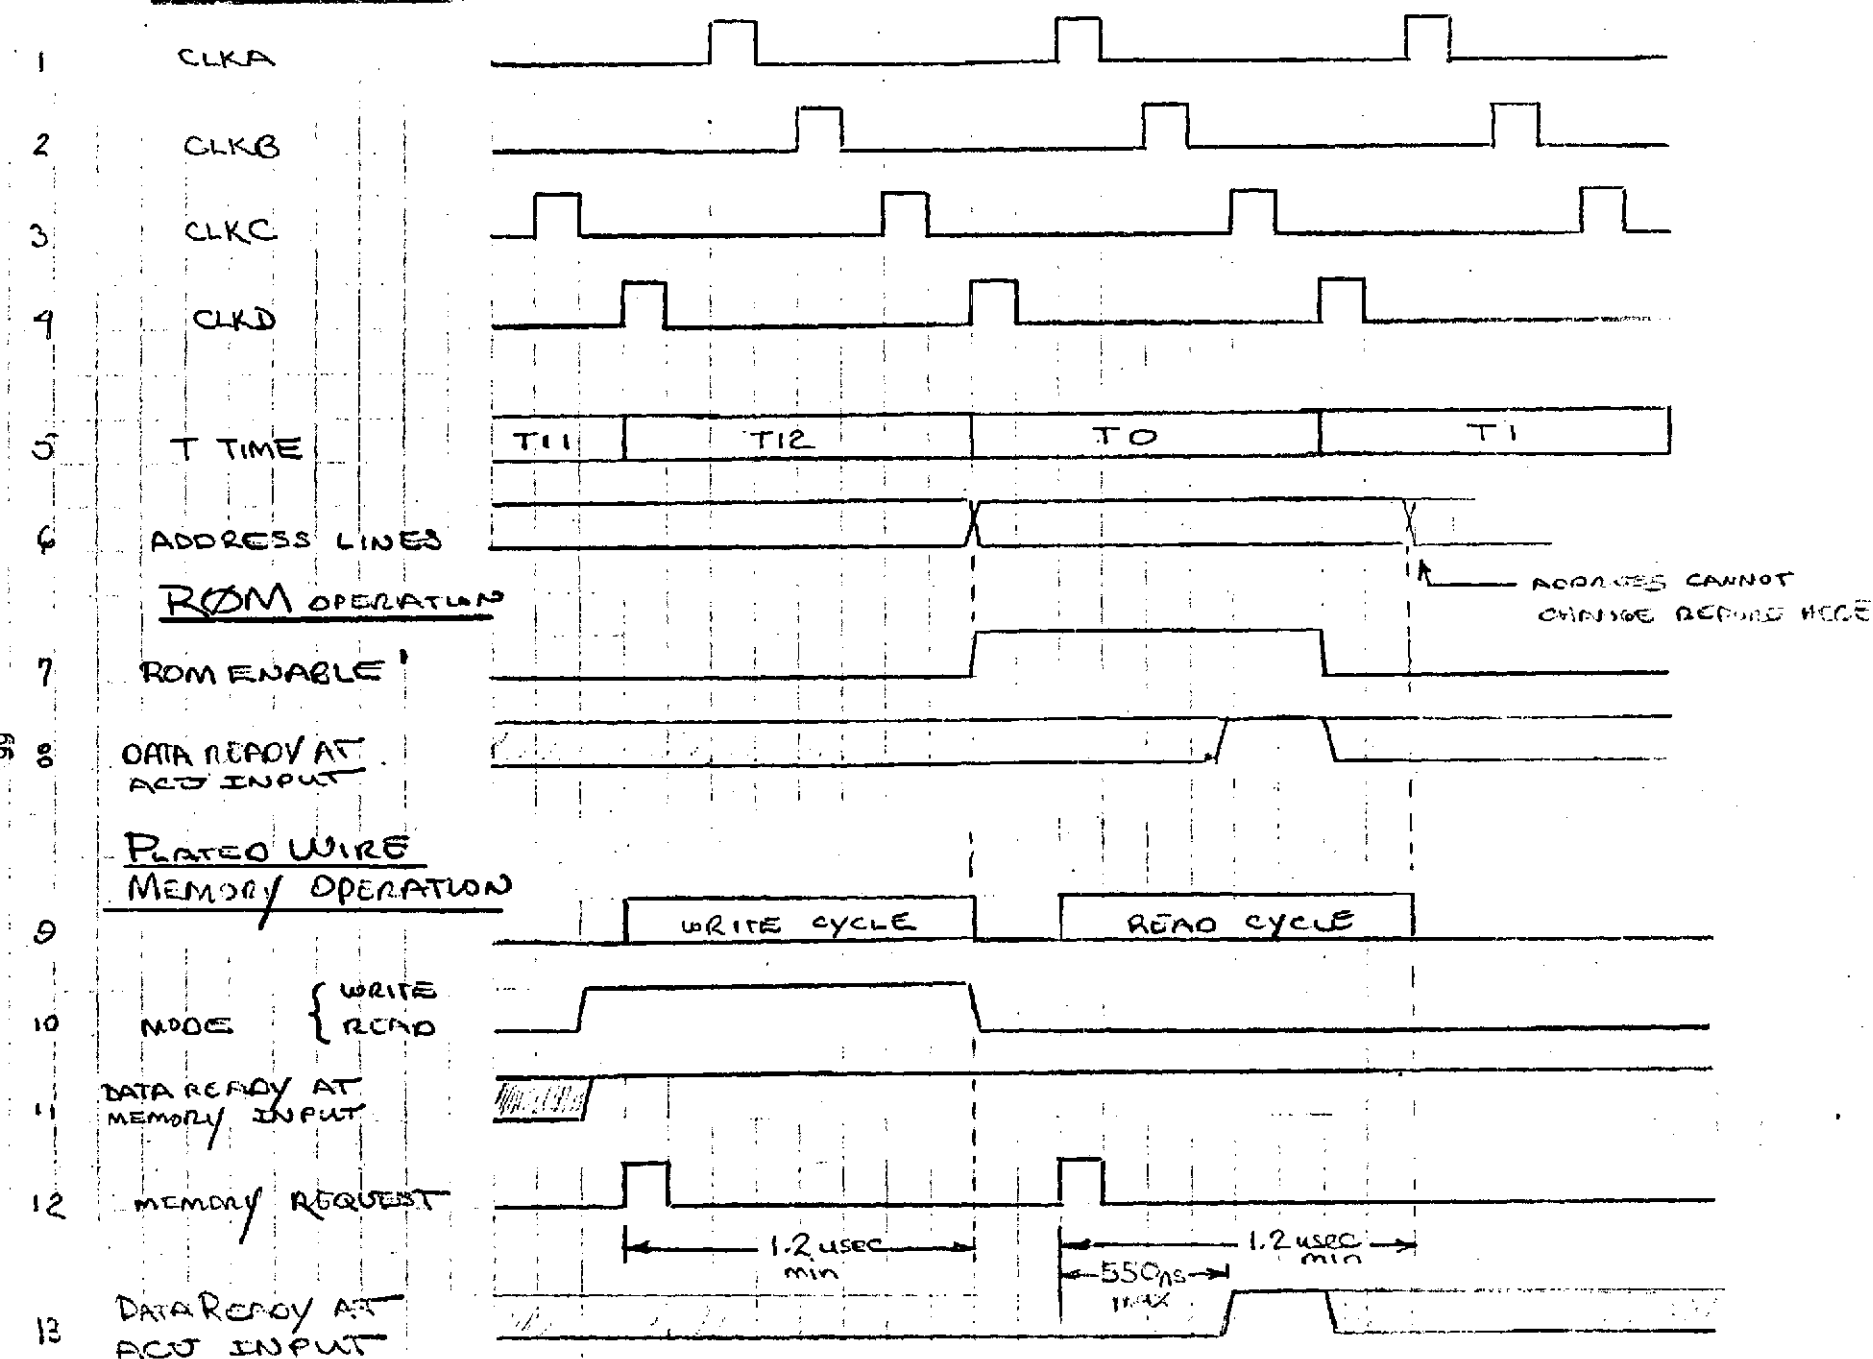 1 CLKA
2 CLKB
3 CLKC
4 CLKD
5 T TIME T11 T12 T0 T1
6 ADDRESS LINES
ADDRESS CANNOT
CHANGE BEFORE HERE
RØM OPERATION
7 ROM ENABLE
8 DATA READY AT
ACU INPUT
PLATED WIRE
MEMORY OPERATION
9 WRITE CYCLE READ CYCLE
10 MODE { WRITE
READ
11 DATA READY AT
MEMORY INPUT
12 MEMORY REQUEST
1.2 usec
min
1.2 usec
min
550ns
max
13 DATA READY AT
ACU INPUT